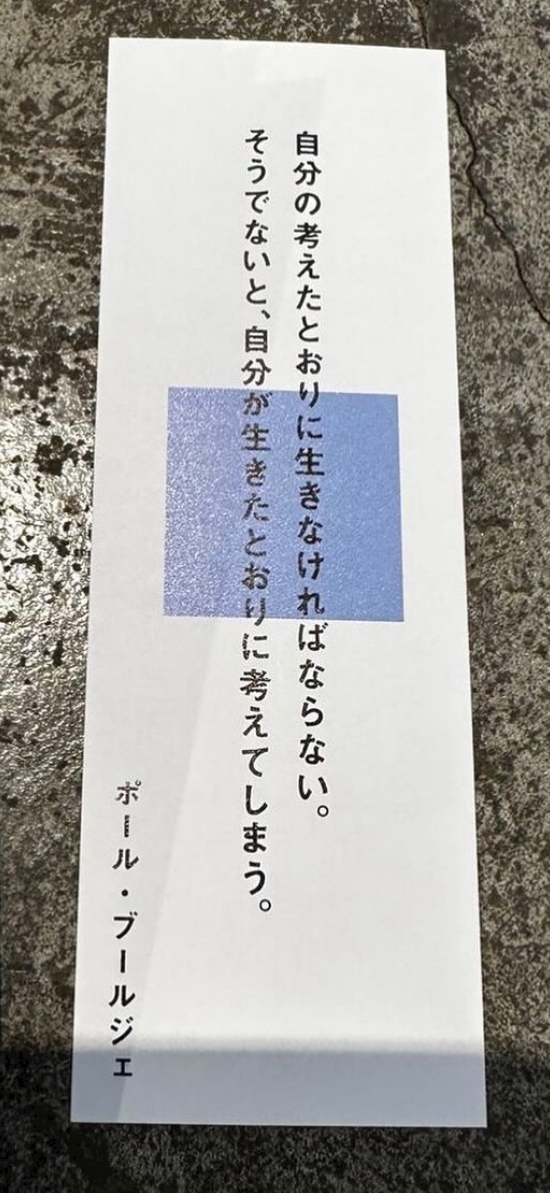 自分の考えたとおりに生きなければならない。
そうでないと、自分が生きたとおりに考えてしまう。
ポール・ブールジェ